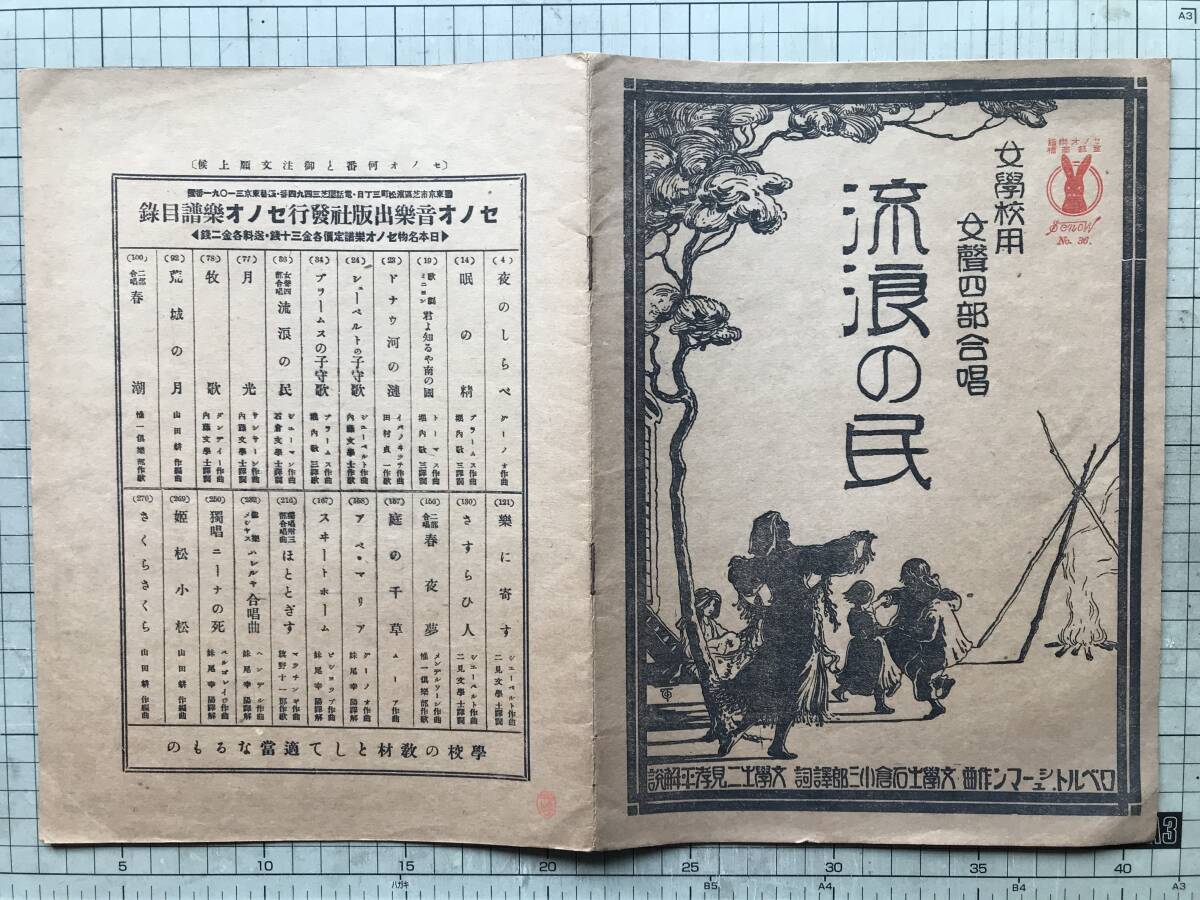 女學校用
女聲四部合唱
流浪の民
セノオ
Senow
No. 36.
ロベルト、シューマン作曲 文學士石倉小三郎譯詞 文學士二見孝平解説
〔セノオ何番と御注文願上候〕
セノオ音樂出版社發行セノオ樂譜目錄
◀日本名物セノオ樂譜定價各金三十錢・送料各金二錢▶
(4) 夜のしらべ グーノオ作曲
(14) 眠の精 ブラームス作曲 堀内敬三譯詞
(19) 歌劇ミニヨン 君よ知るや南の國 トーマス作曲 堀内敬三譯詞
(23) ドナウ河の漣 イバノヰッチ作曲 田村貞一作歌
(24) シューベルトの子守歌 シューベルト作曲 内藤文學士作歌
(34) ブラームスの子守歌 ブラームス作曲 堀内敬三譯詞
(36) 女聲四部合唱 流浪の民 シューマン作曲 石倉文學士譯詞
(77) 月光 内藤文學士譯詞
(78) 牧歌 内藤文學士譯詞
(92) 荒城の月 山田耕作編曲
(100) 二部合唱 春潮 惟一倶樂部作歌
(121) 樂に寄す シューベルト作曲 二見文學士譯詞
(130) さすらひ人 シューベルト作曲 二見文學士譯詞
(156) 二部合唱 春夜夢 メンデルソーン作曲 惟一倶樂部作歌
(157) 庭の千草 ムーア作曲
(158) アベ・マリア グーノオ作曲 妹尾幸陽譯解
(167) スヰートホーム ビショップ作曲 妹尾幸陽譯解
(216) 獨唱附三部合唱曲 ほとゝぎす 旗野十一郎作歌
(232) ハレルヤ合唱曲 ヘンデル作曲 妹尾幸陽譯解
(250) 獨唱 ニーナの死 ペルゴレイゼ作曲 妹尾幸陽譯解
(269) 姫松小松 山田耕作編曲
(270) さくらさくら 山田耕作編曲
學校の教材として適當なるもの
5
10
15
20
25
30
35
40
ハガキ
B5
A4
B4
A3
A3
A3